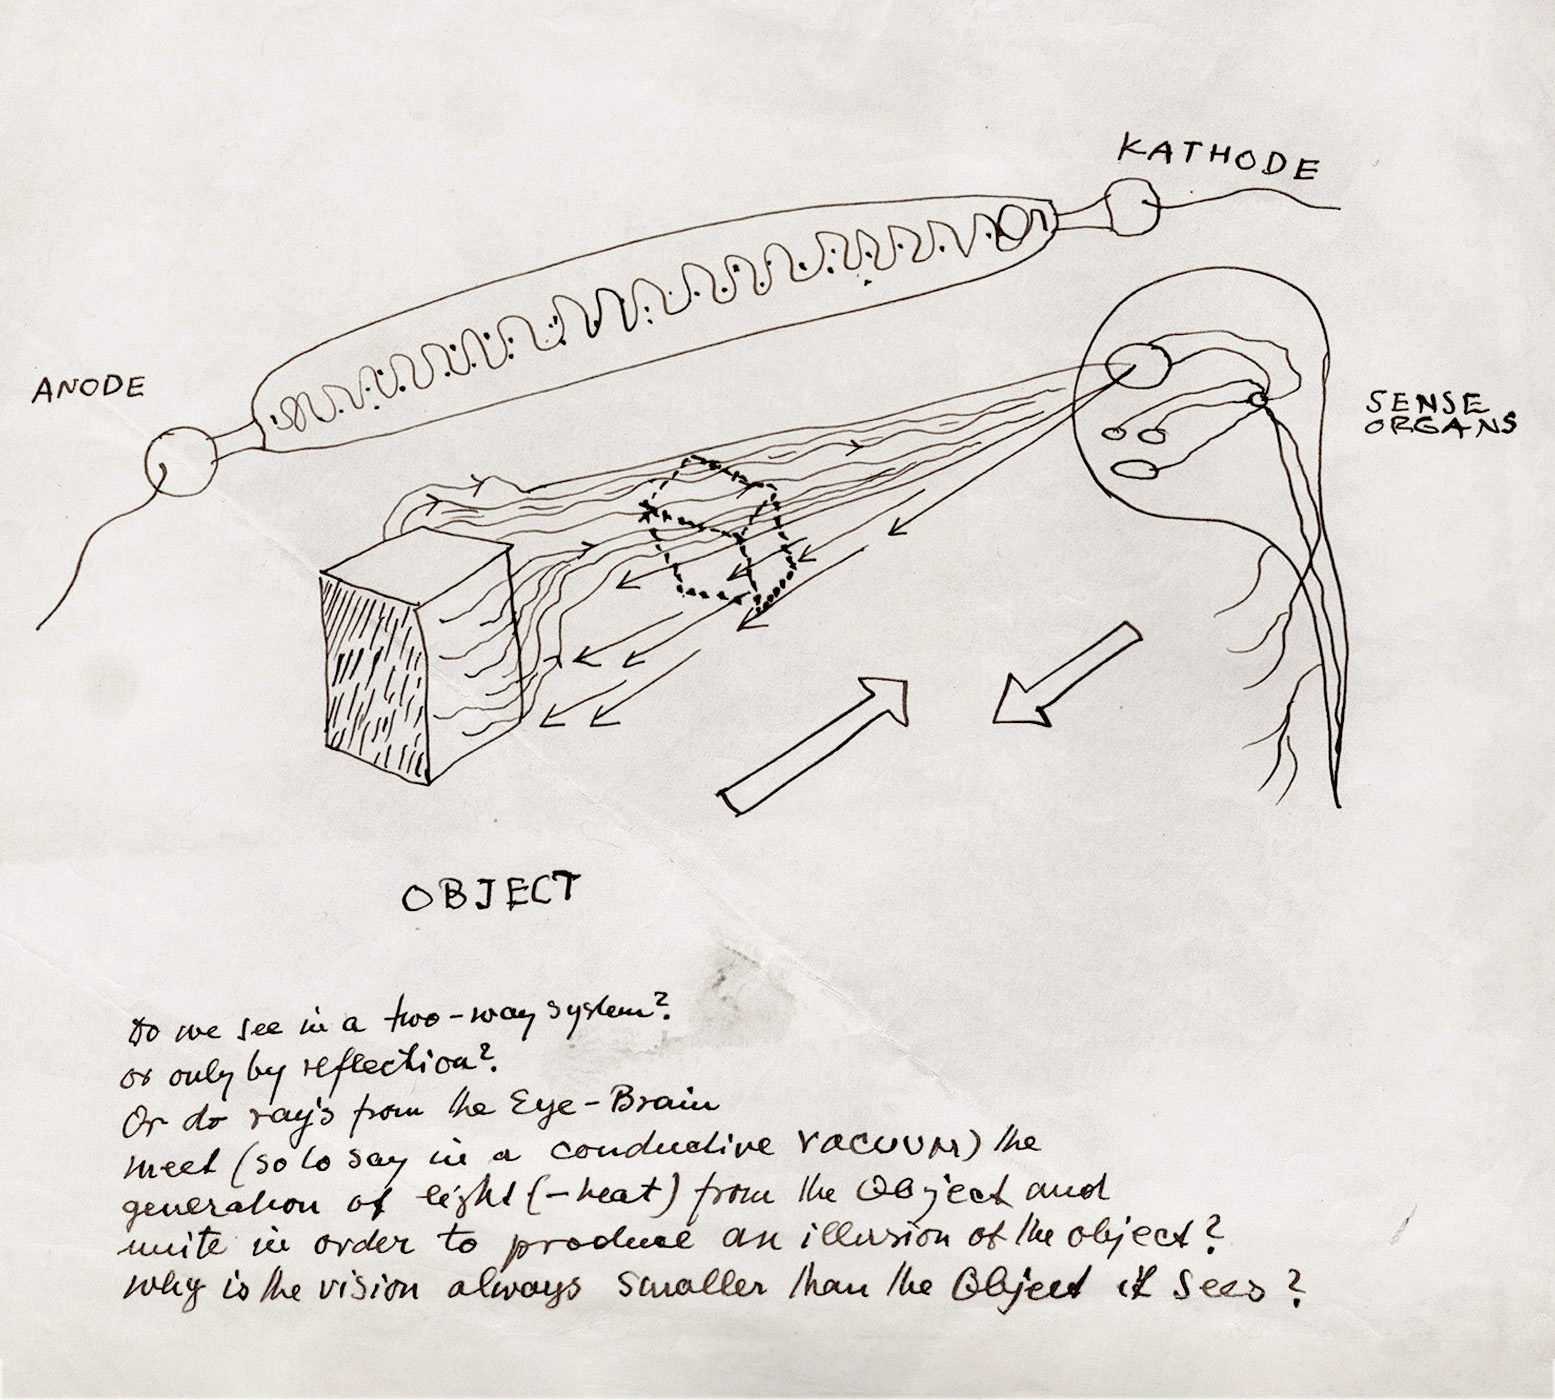 KATHODE
ANODE
SENSE
ORGANS
OBJECT
Do we see in a two-way system?
or only by reflection?
Or do rays from the Eye-Brain
meet (so to say in a conductive VACUUM) the
generation of light (-heat) from the Object and
unite in order to produce an illusion of the object?
Why is the vision always smaller than the Object it sees?